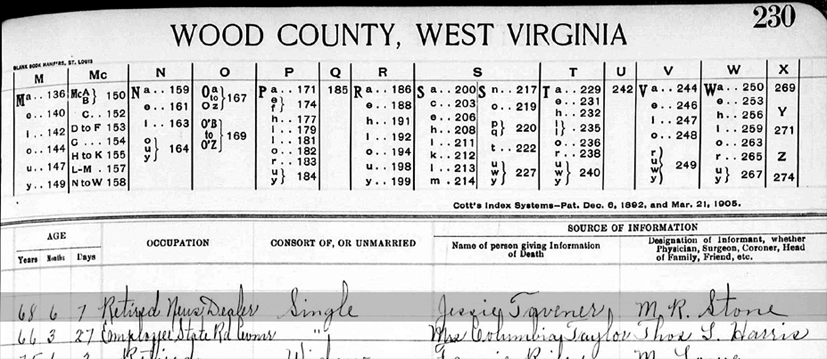 230
WOOD COUNTY, WEST VIRGINIA
BLANK BOOK MAKERS, ST. LOUIS
M Mc N O P Q R S T U V W X
Ma.. 136 McA B} 150 Na .. 159 Oa to Oz} 167 Pa .. 171 185 Ra .. 186 Sa .. 200 Sn.. 217 Ta .. 229 242 Va .. 244 Wa.. 250 269
e.. 140 C... 152 e .. 161 e f} 174 e .. 188 c .. 203 o .. 219 e .. 231 e .. 246 e .. 253
i .. 142 D to F 153 i .. 163 O'B to O'Z} 169 h .. 177 h .. 191 e .. 206 p q} 220 h .. 232 i .. 247 h .. 256 Y
o.. 144 G .... 154 o u y} 164 i .. 179 i .. 192 h .. 208 t .. 222 i l} . 235 o .. 248 i .. 259 271
u .. 147 H to K 155 l .. 181 o .. 194 i .. 211 u w y} 227 o .. 236 r u y} 249 o .. 263 Z
y .. 149 L-M . 157 o .. 182 u .. 198 k .. 212 r .. 238 r .. 265 274
N to W 158 r .. 183 y .. 199 l .. 213 u w y} 240 u y} 267
u y} 184 m .. 214
Cott's Index Systems-Pat. Dec. 6, 1892, and Mar. 21, 1905.
AGE OCCUPATION CONSORT OF, OR UNMARRIED SOURCE OF INFORMATION
Years Months Days Name of person giving Information of Death Designation of Informant, whether Physician, Surgeon, Coroner, Head of Family, Friend, etc.
68 6 7 Retired News Dealer Single Jessie Tavener M. R. Stone
66 3 27 Employee State Rd Comr " Mrs Columbia Taylor Thos L. Harris